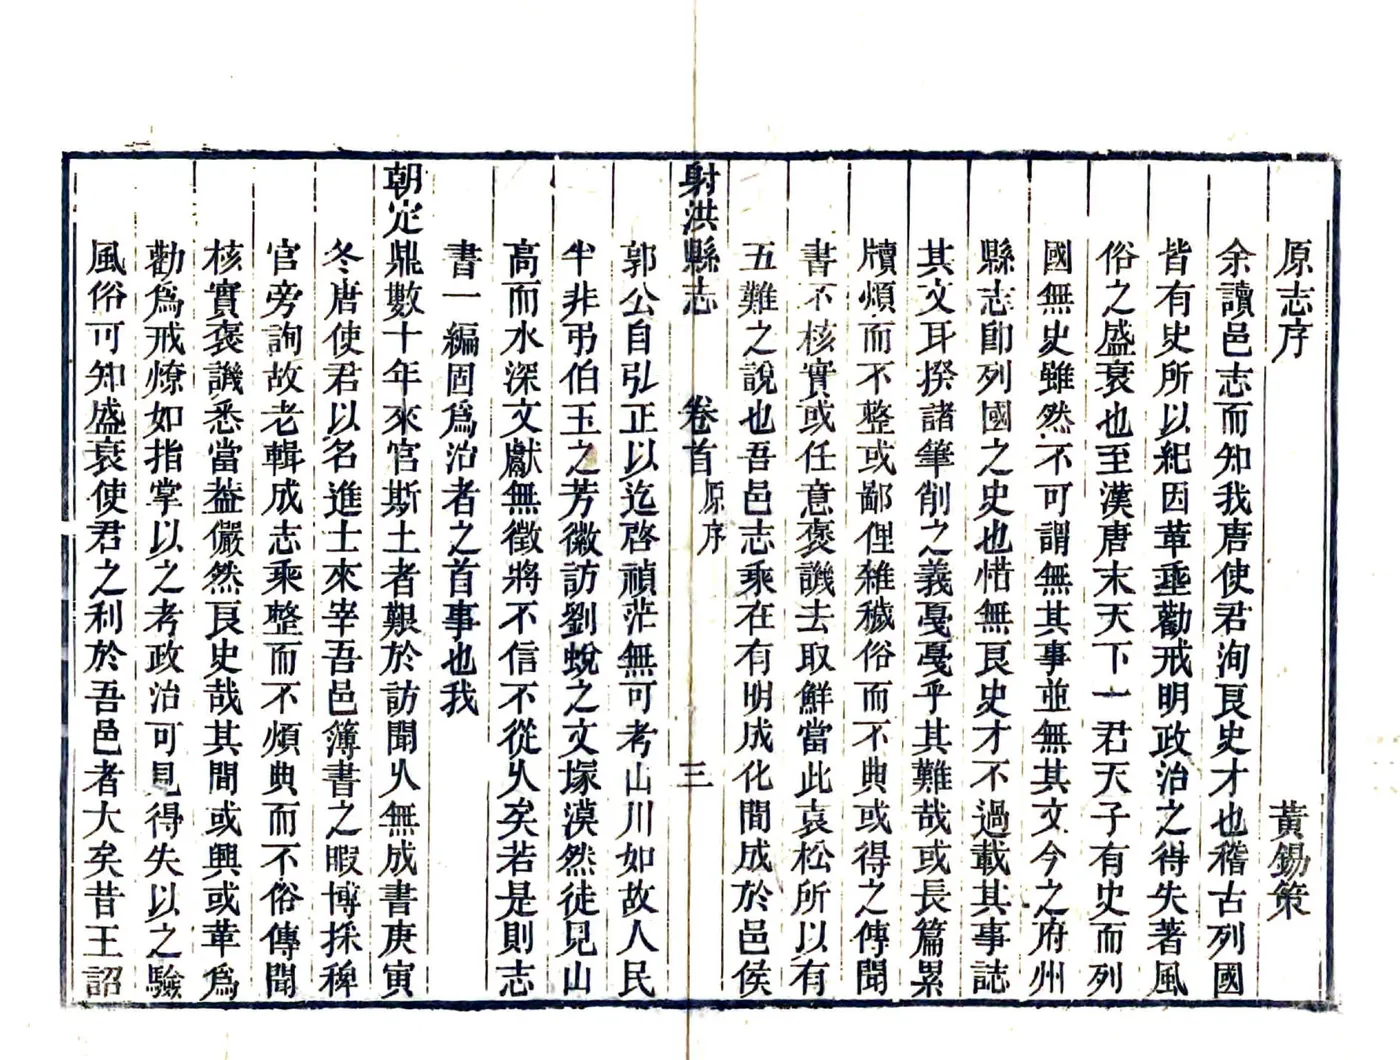 原志序
黃錫策
余讀邑志而知我唐使君洵良史才也稽古列國
皆有史所以紀因革垂勸戒明政治之得失著風
俗之盛衰也至漢唐末天下一君天子有史而列
國無史雖然不可謂無其事並無其文今之府州
縣志卽列國之史也惜無良史才不過載其事誌
其文耳揆諸筆削之義戞戞乎其難哉或長篇累
牘煩而不整或鄙俚雜穢俗而不典或得之傳聞
書不核實或任意褒譏去取鮮當此袁松所以有
五難之說也吾邑志乘在有明成化間成於邑侯
射洪縣志
卷首
原序
三
郭公自弘正以迄啓禎茫無可考山川如故人民
半非弔伯玉之芳徽訪劉蛻之文塚漠然徒見山
高而水深文獻無徵將不信不從乆矣若是則志
書一編固爲治者之首事也我
朝定鼎數十年來官斯土者艱於訪聞乆無成書庚寅
冬唐使君以名進士來宰吾邑簿書之暇博採稗
官旁詢故老輯成志乘整而不煩典而不俗傳聞
核實褒譏悉當葢儼然良史哉其間或興或革爲
勸爲戒燎如指掌以之考政治可見得失以之驗
風俗可知盛衰使君之利於吾邑者大矣昔王詔